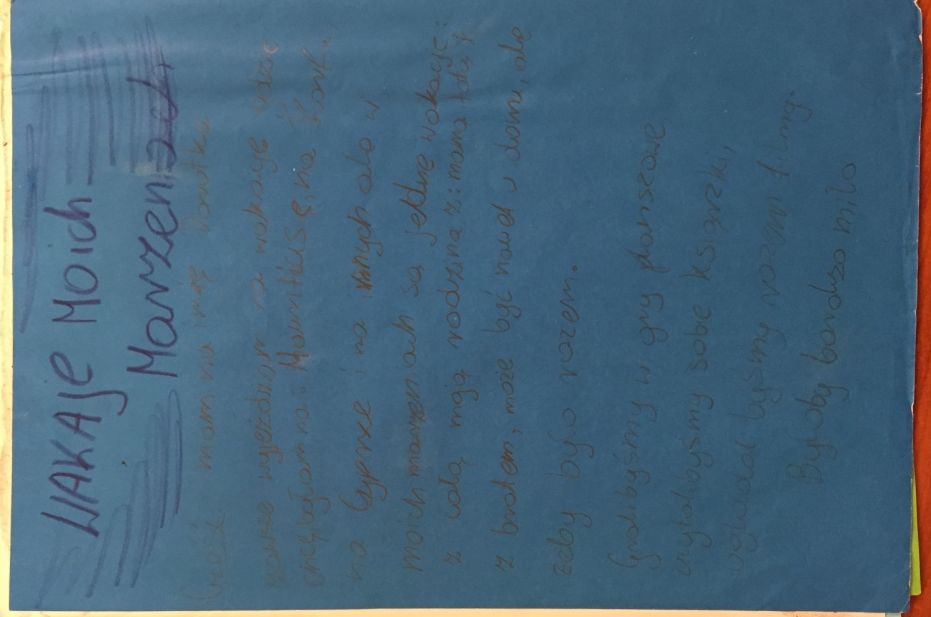 WAKAJE MOICH
Marzeń
Cześć mam na imię Dorotka
zawsze wyjeżdżam na wakacje
byłam na: Mauritiusie, na
na Cyprze i na innych ale w
moich marzeniach są jedne wakacje:
z całą moją rodziną z: mamą tatą i
z bratem, może być nawet w domu, ale
żeby było razem.
Gralibyśmy w gry planszowe
czytalibyśmy sobie książki,
byśmy razem filmy.
Byłoby bardzo miło